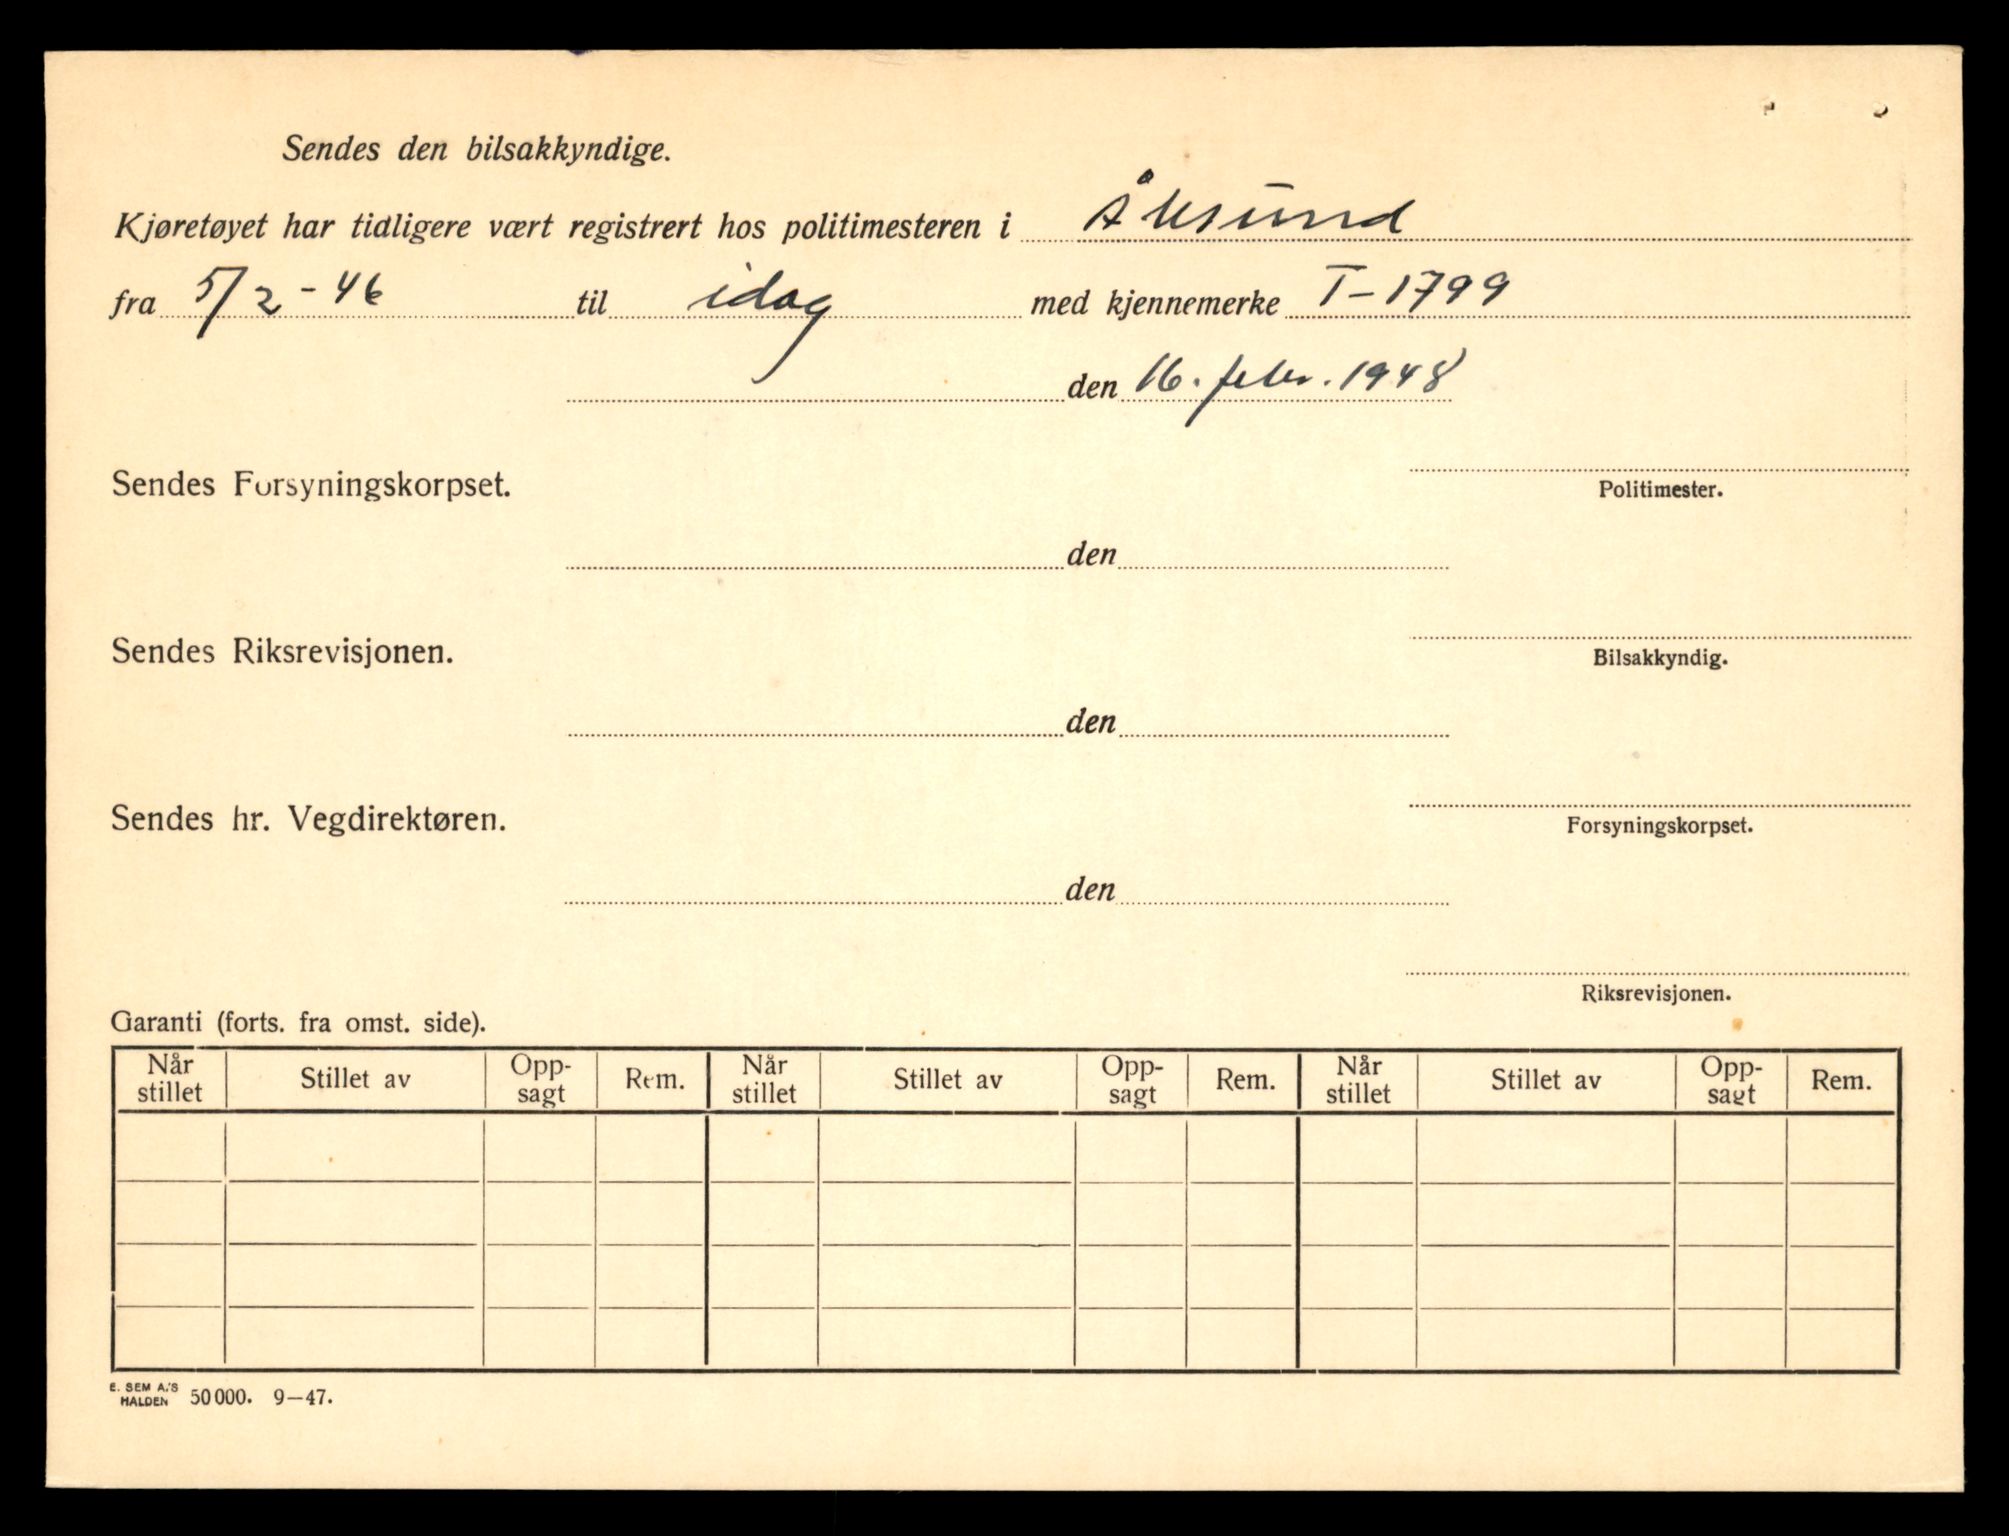 Sendes den bilsakkyndige.
Kjøretøyet har tidligere vært registrert hos politimesteren i Ålesund
fra 5/2-46 til idag med kjennemerke T-1799
den 16. febr. 1948
Sendes Forsyningskorpset.
Politimester.
den
Sendes Riksrevisjonen.
Bilsakkyndig.
den
Sendes hr. Vegdirektøren.
Forsyningskorpset.
den
Riksrevisjonen.
Garanti (forts. fra omst. side).
Når stillet Stillet av Opp-sagt Rem. Når stillet Stillet av Opp-sagt Rem. Når stillet Stillet av Opp-sagt Rem.
E. SEM A.'S HALDEN 50 000. 9—47.